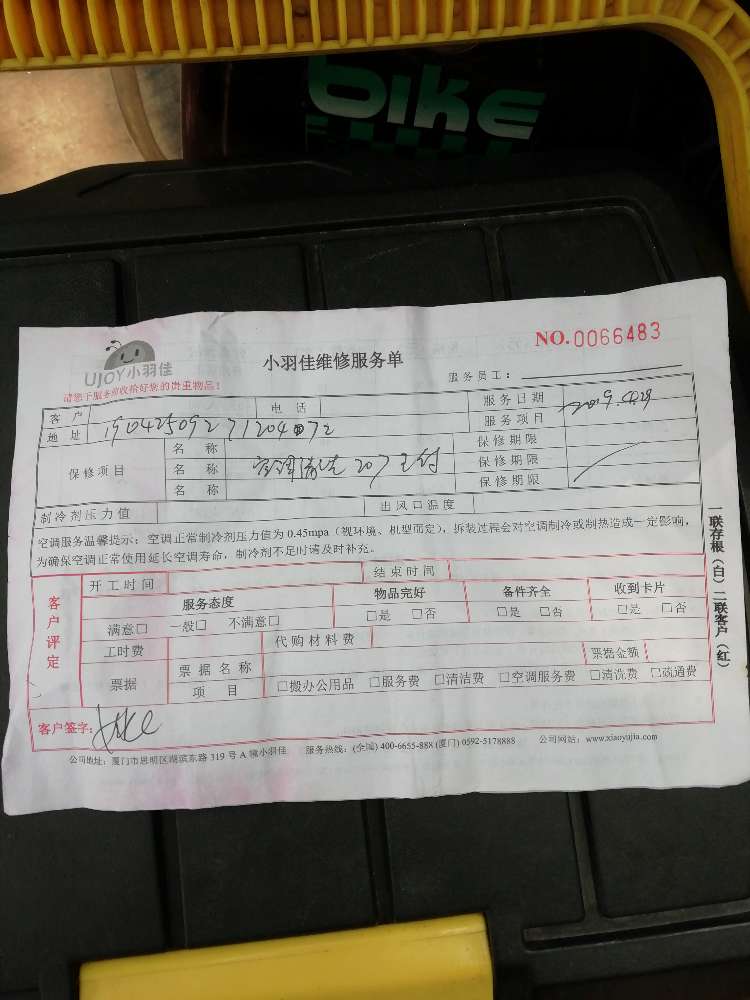 bike
NO.0066483
UJOY小羽佳
小羽佳维修服务单
请您于服务前收拾好您的贵重物品！
服务员工：
客户 电话 服务日期 2019.4.29
地址 19042509271204072 服务项目
保修项目 名称 保修期限
名称 空调清洗 保修期限
名称 保修期限
制冷剂压力值 出风口温度
空调服务温馨提示：空调正常制冷剂压力值为0.45mpa（视环境、机型而定），拆装过程会对空调制冷或制热造成一定影响，
为确保空调正常使用延长空调寿命，制冷剂不足时请及时补充。
客户评定
开工时间 结束时间
服务态度 物品完好 备件齐全 收到卡片
满意□ 一般□ 不满意□ □是 □否 □是 □否 □是 □否
工时费 代购材料费
票据 票据名称 票据金额
项目 □搬办公用品 □服务费 □清洁费 □空调服务费 □清洗费 □疏通费
客户签字：
公司地址：厦门市思明区湖滨东路319号A幢小羽佳 服务热线：(全国) 400-6655-888 (厦门) 0592-5178888 公司网站：www.xiaoyujia.com
一联存根（白）二联客户（红）